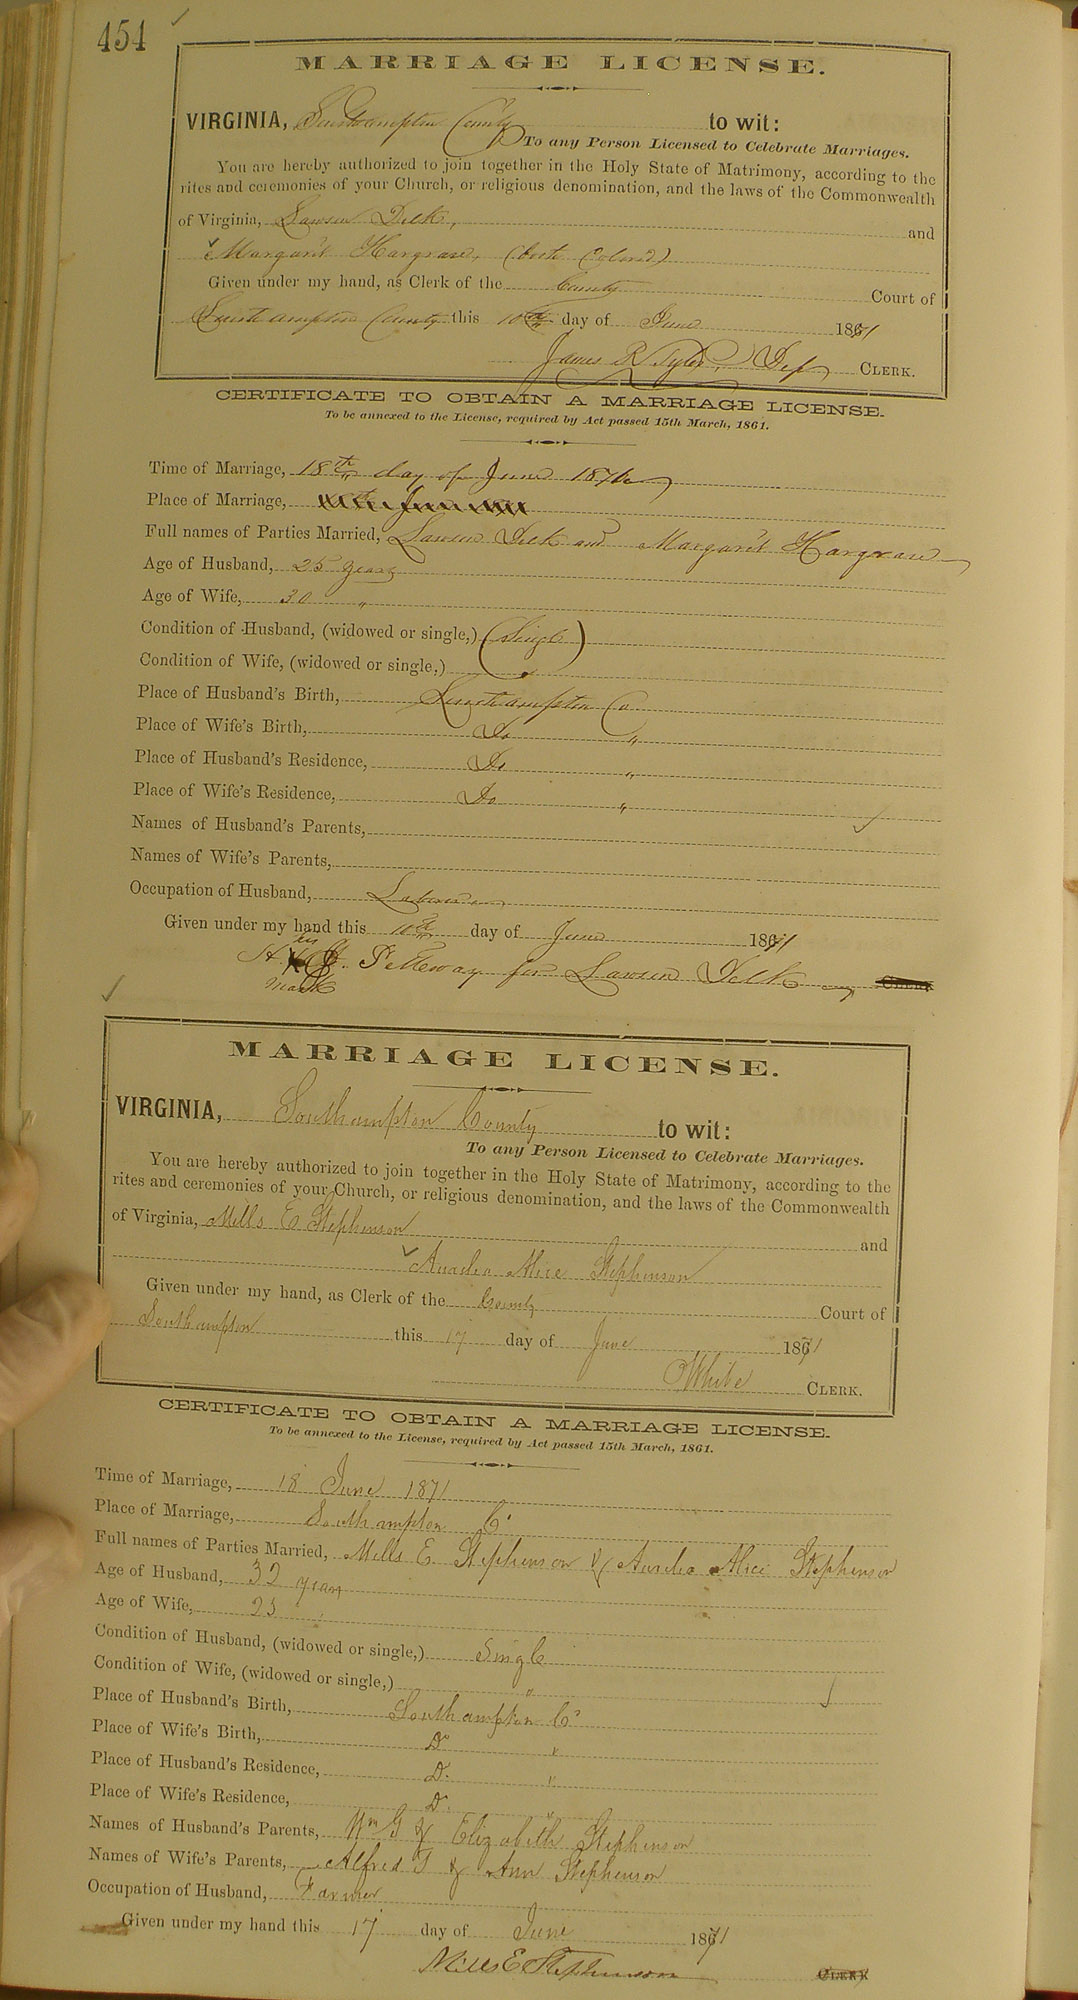 454
MARRIAGE LICENSE.
VIRGINIA, Southampton County to wit:
To any Person Licensed to Celebrate Marriages.
You are hereby authorized to join together in the Holy State of Matrimony, according to the
rites and ceremonies of your Church, or religious denomination, and the laws of the Commonwealth
of Virginia, Lawson Delk, and
Margaret Hargrave, (both Colored)
Given under my hand, as Clerk of the County Court of
Southampton County this 10th day of June 1871
James R Tyler, Dep CLERK.
CERTIFICATE TO OBTAIN A MARRIAGE LICENSE.
To be annexed to the License, required by Act passed 15th March, 1861.
Time of Marriage, 18th day of June
Place of Marriage,
Full names of Parties Married, Lawson Delk and Margaret Hargrave
Age of Husband, 25 years
Age of Wife, 30 "
Condition of Husband, (widowed or single,) (Single)
Condition of Wife, (widowed or single,)
Place of Husband's Birth, Southampton Co
Place of Wife's Birth, Do "
Place of Husband's Residence, Do "
Place of Wife's Residence, Do "
Names of Husband's Parents,
Names of Wife's Parents,
Occupation of Husband, Laborer
Given under my hand this 10th day of June 1871
his
Petteway for Lawson Delk CLERK
mark
MARRIAGE LICENSE.
VIRGINIA, Southampton County to wit:
To any Person Licensed to Celebrate Marriages.
You are hereby authorized to join together in the Holy State of Matrimony, according to the
rites and ceremonies of your Church, or religious denomination, and the laws of the Commonwealth
of Virginia, Mills E Stephenson and
Aurelia Alice Stephenson
Given under my hand, as Clerk of the County Court of
Southampton this 17 day of June 1871
White CLERK.
CERTIFICATE TO OBTAIN A MARRIAGE LICENSE.
To be annexed to the License, required by Act passed 15th March, 1861.
Time of Marriage, 18 June 1871
Place of Marriage, Southampton Co
Full names of Parties Married, Mills E Stephenson & Aurelia Alice Stephenson
Age of Husband, 32 years
Age of Wife, 25 "
Condition of Husband, (widowed or single,) Single
Condition of Wife, (widowed or single,) "
Place of Husband's Birth, Southampton Co
Place of Wife's Birth, Do "
Place of Husband's Residence, Do "
Place of Wife's Residence, Do "
Names of Husband's Parents, Wm G & Elizabeth Stephenson
Names of Wife's Parents, Alfred T & Ann Stephenson
Occupation of Husband, Farmer
Given under my hand this 17 day of June 1871
Mills E Stephenson CLERK